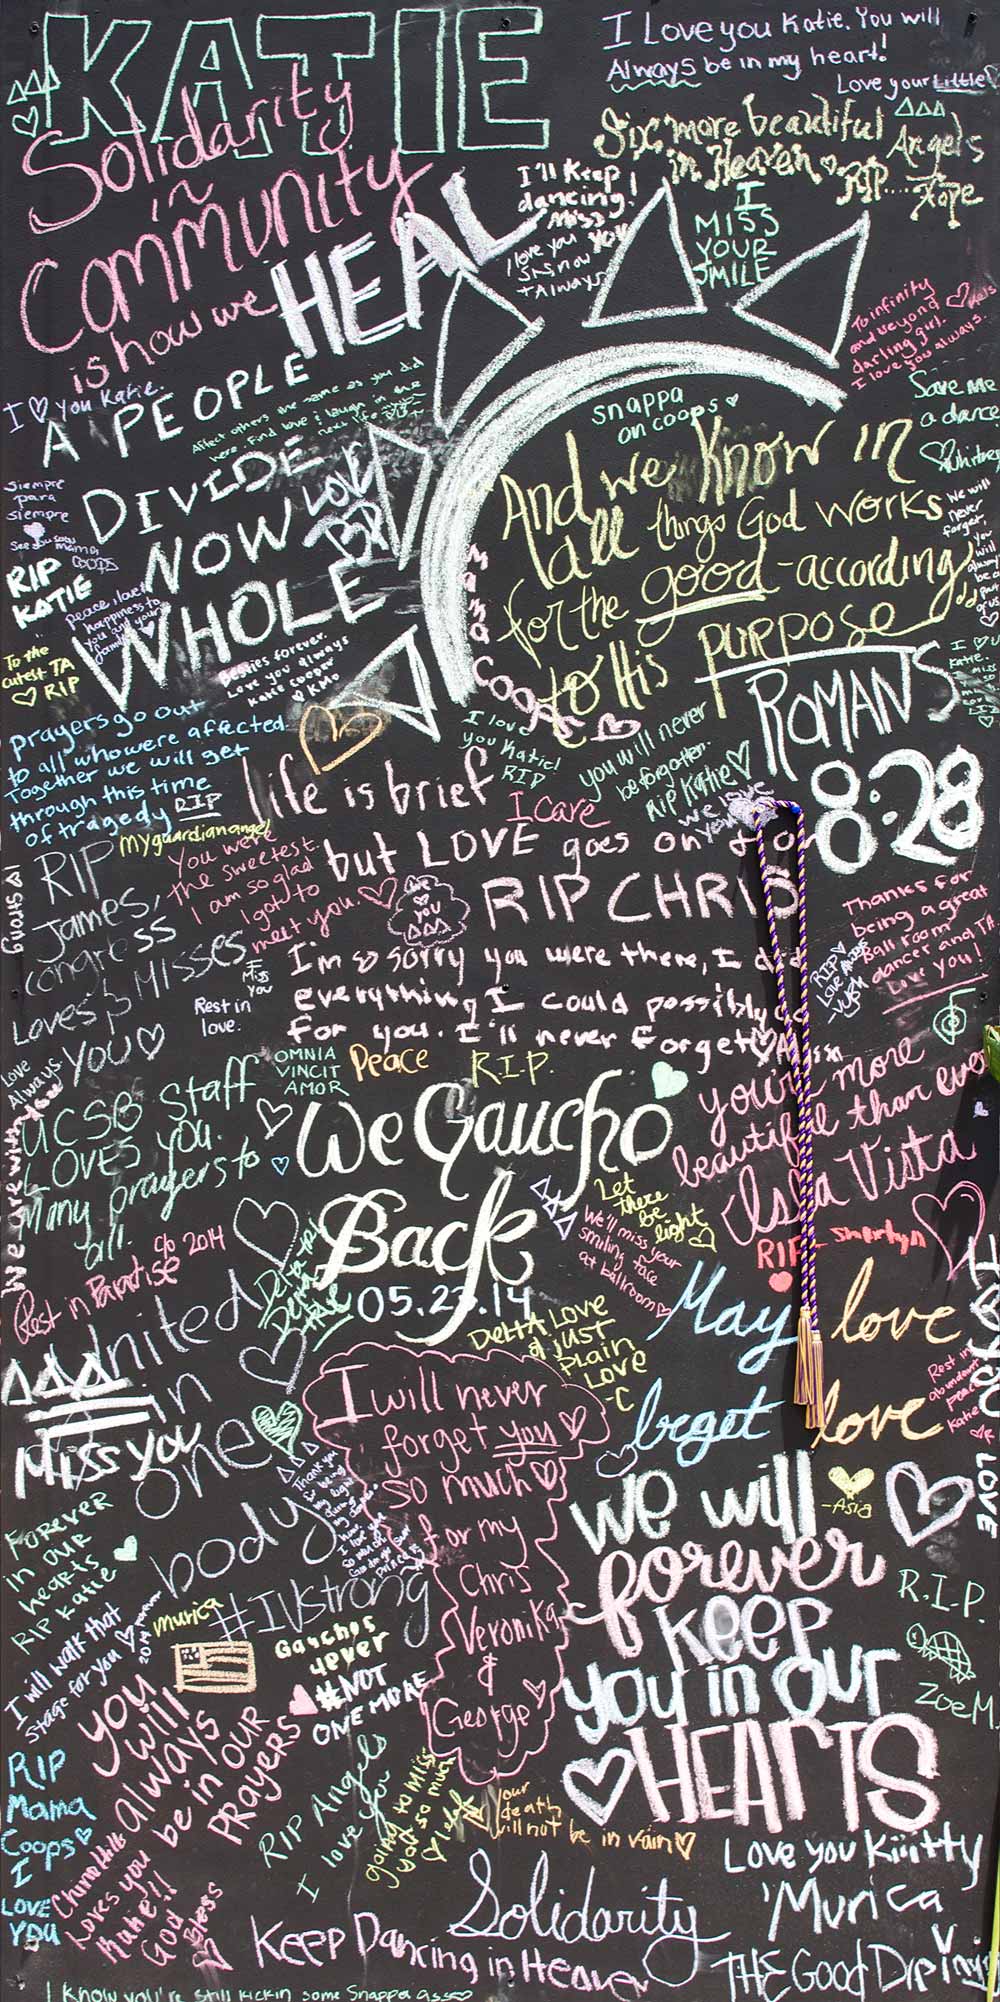 KATIE
I Love you Katie. You will
Always be in my heart!
Love your Little
ΔΔΔ
ΔΔΔ
Solidarity
in
Community
is how we HEAL
Six more beautiful Angels
in Heaven RIP... Hope
I'll keep
dancing!
Miss
you
I love you
SKS now
+ Always
I
MISS
YOUR
SMILE
To infinity
and beyond
darling girl.
I love you always.
I ♡ you Katie.
A PEOPLE
DIVIDED
NOW
WHOLE
Affect others the same as you did
here. Find love & laugh in the
next life
snappa
on coops
Save me
a dance
Whitney
And we know in
all things God works
for the good - according
to His purpose
ROMANS
8:28
We will
never
forget.
You
will
always
be a
part
of us
mama
coops
siempre
para
siempre
See you soon
mama
coops
RIP
KATIE
Peace, love &
happiness to
you and your
family
To the
cutest TA
♡ RIP
Besties forever.
Love you always
Katie Cooper
♡ KMO
prayers go out
to all who were affected
Together we will get
through this time
of tragedy RIP
I love
you Katie!
RIP
you will never
be forgotten.
Rip Katie ♡
we love
you
life is brief
but LOVE goes on
I Care
RIP CHRIS
My guardian angel
You were
the sweetest.
I am so glad
I got to
meet you. ♡
We
♡
you
ΔΔΔ
RIP
James,
congress
Loves & MISSES
YOU ♡
IV Strong
I
Miss
you
Rest in
love.
I'm so sorry you were there, I did
everything I could possibly do
for you. I'll never forget
Thanks for
being a great
Ballroom
dancer and TA
Love you!
RIP
Love Always
OMNIA
VINCIT
AMOR
Peace
R.I.P.
Love
Always.
UCSB Staff
LOVES you.
Many prayers to
all.
We Gaucho
Back
05.23.14
you're more
beautiful than ever
Isla Vista
Let
there
be
light
We'll miss your
smiling face
at ballroom
Rest in Paradise c/o 2014
Delta
RIP
May love
beget love
DELTA LOVE
& JUST
PLAIN
LOVE
-C
Rest in
abundant
peace
Katie
ΔΔΔ
United
in
one
body
Miss you
I will never
forget you
so much
for my
Chris
Veronika
&
George
LOVE
-Asia
we will
forever
keep
you in our
♡HEARTS
FOREVER
in OUR
hearts
RIP Katie
#IVstrong
murica
R.I.P.
Zoe M.
I will walk that
stage for you
forever
2014
Gauchos
4ever
#NOT
ONE MORE
you
will
always
be in our
prayers
RIP
Mama
Coops
I
LOVE
YOU
RIP Angels
I love you
going to miss
you so much
your
death
will not be in vain ♡
Loves you
Katie!!
God
Bless
Love you Kiiitty
'Murica
Solidarity
Keep Dancing in Heaven
I know you're still kickin some Snappa ass